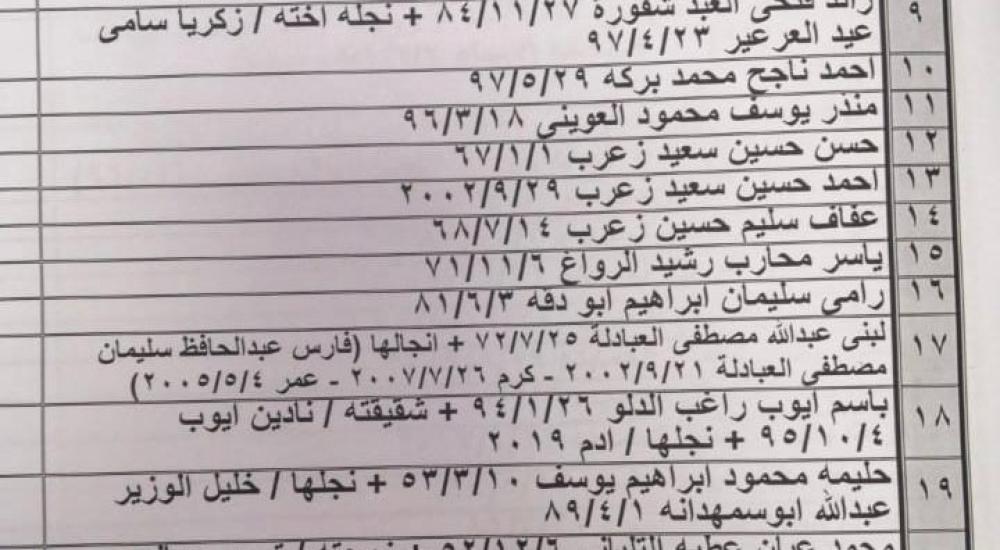 ٩ رائد فتحي العبد شقورة ٨٤/١١/٢٧ + نجله اخته / زكريا سامي
عيد العرعير ٩٧/٤/٢٣
١٠ احمد ناجح محمد بركه ٩٧/٥/٢٩
١١ منذر يوسف محمود العويني ٩٦/٣/١٨
١٢ حسن حسين سعيد زعرب ٦٧/١/١
١٣ احمد حسين سعيد زعرب ٢٠٠٢/٩/٢٩
١٤ عفاف سليم حسين زعرب ٦٨/٧/١٤
١٥ ياسر محارب رشيد الرواغ ٧١/١١/٦
١٦ رامي سليمان ابراهيم ابو دقه ٨١/٦/٣
١٧ لبنى عبدالله مصطفى العبادلة ٧٢/٧/٢٥ + انجالها (فارس عبدالحافظ سليمان
مصطفى العبادلة ٢٠٠٢/٩/٢١ - كرم ٢٠٠٧/٧/٢٦ - عمر ٢٠٠٥/٥/٤)
١٨ باسم ايوب راغب الدلو ٩٤/١/٢٦ + شقيقته / نادين ايوب
٩٥/١٠/٤ + نجلها / ادم ٢٠١٩
١٩ حليمه محمود ابراهيم يوسف ٥٣/٣/١٠ + نجلها / خليل الوزير
عبدالله ابوسمهدانه ٨٩/٤/١
٥٢/١٢/٦